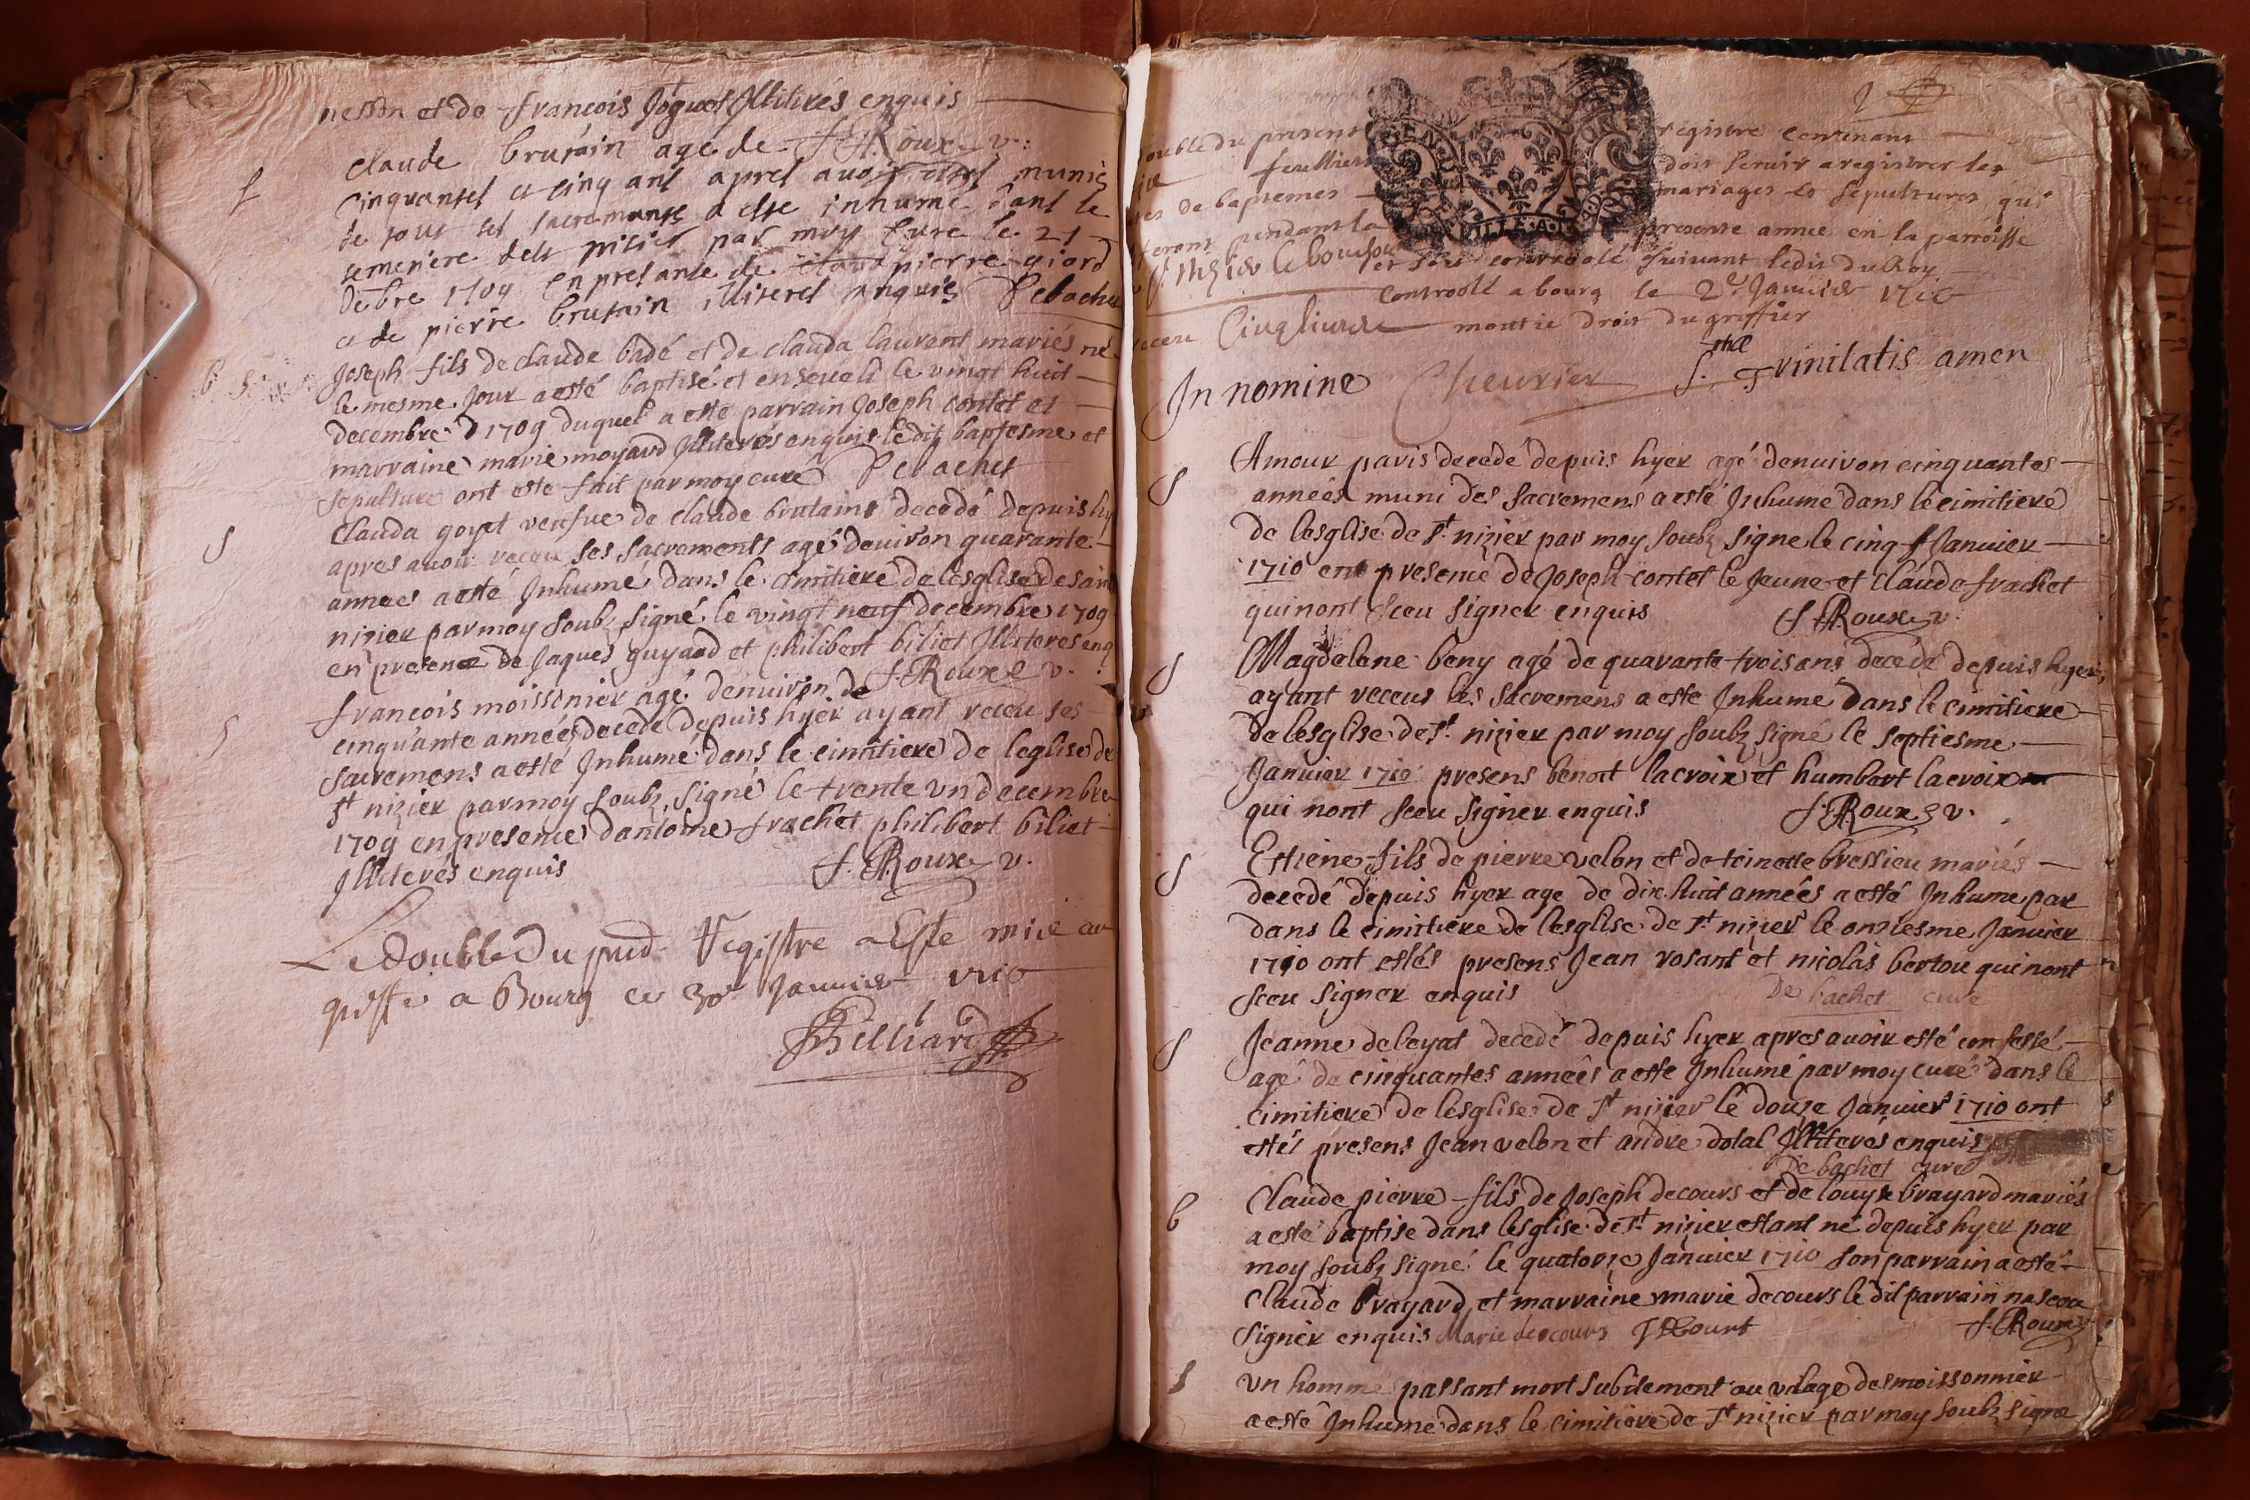 nesson et de francois Joguet Illiterés enquis
f. Roux v.
claude brutain age de
f
cinquantes et cinq ans apres avoir estes munis
de tous ses sacremants a este inhume dans le
semetiere de st nisier par moy cure le 21
desbre 1709 en presance de pierre giord
et de pierre brutain illiteres anquis Debachet
b. S.
Joseph fils de claude badé et de clauda laurent mariés né
le mesme Jour a esté baptisé et enseveli le vingt huit
decembre 1709 duquel a esté parrain Joseph contet et
marraine marie moyard Illiterés enquis le dit baptesme et
sepulture ont este fait par moy cure Debachet
S
Clauda goyet veufue de claude brutains decedé depuis hy
apres avoir receu ses sacrements agé denviron quarante
annees a esté Inhumé dans le cimitiere de lesglise de sain
nizier par moy soubz signé le vingt neuf decembre 1709
en presence de Jaques guyard et philibert biliet Illiteres enq
f. Roux v.
S
francois moissonier agé denviron de
cinquante années decede depuis hyer ayant receu ses
sacremens a esté Inhumé dans le cimitiere de leglise de
st nizier par moy soubz signé le trente un decembre
1709 en presence dantoine frachet philibert biliet
Illiterés enquis f. Roux v.
Le double du pnt Registre a Esté mis au
greffe a Bourg ce 30e Janvier 1710
Billiard
double du present registre contenant
feulliers doit servir a registrer les
de baptemes mariages et sepultures qui
feront pendant la presente annee en la parroisse
St Nizier le bouchou et sera controolé suivant ledit du Roy
Controolé a bourg le 2e Janvier 1710
receu Cinq livres montie droit du greffier
In nomine Cheurier S. stae Trinitatis amen
S
Amour paris decedé depuis hyer agé denviron cinquantes
années muni des sacremens a esté Inhumé dans le cimitiere
de lesglise de st nizier par moy soubz signe le cinq Janvier
1710 en presence de Joseph contet le Jeune et Claude frachet
qui nont sceu signer enquis f. Roux v.
S
Magdelene beny agé de quarante trois ans decedé depuis hyer,
ayant receus les sacremens a este Inhumé dans le cimitiere
de lesglise de st nizier par moy soubz signé le septiesme
Janvier 1710 presens benoit lacroix et humbert lacroix
qui nont sceu signer enquis f. Roux v.
S
Estiene fils de pierre velon et de teinette bressieu mariés
decedé depuis hyer age de dix huit années a esté Inhume par
dans le cimitiere de lesglise de st nizier le onziesme Janvier
1710 ont estés presens Jean rosant et nicolas bertou qui nont
sceu signer enquis De bachet curé
S
Jeanne deleyat decedé depuis hyer apres avoir esté confessé
agé de cinquantes années a este Inhumé par moy curé dans le
cimitiere de lesglise de st nizier le douze Janvier 1710 ont
estés presens Jean velon et andre dotal Illiterés enquis
De bachet curé
b
Claude pierre fils de Joseph decours et de louyse brayard mariés
a esté baptise dans lesglise de st nizier estant né depuis hyer par
moy soubz signé le quatorze Janvier 1710 son parrain a esté
Claude brayard et marraine marie decours le dit parrain na sceu
signer enquis Marie decours f. Roux
S
un homme passant mort subitement au vilage des moissonnier
a esté Inhumé dans le cimitiere de st nizier par moy soubz signe